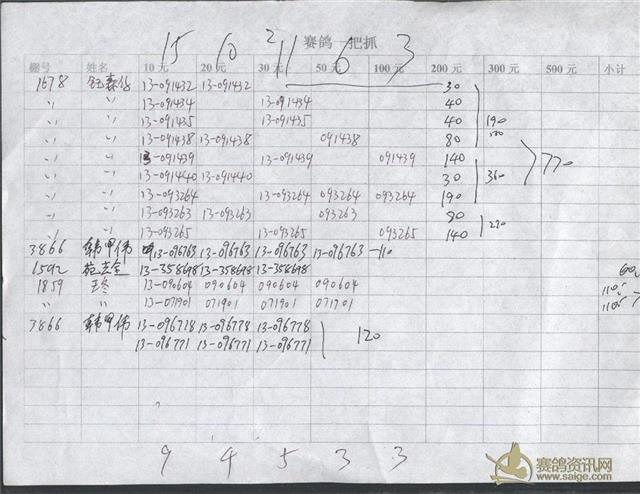 15 10 11 6 3
赛鸽一把抓
棚号 姓名 10元 20元 30元 50元 100元 200元 300元 500元 小计
1678 13-091432 13-091432 30
〃 〃 13-091434 13-091434 40
〃 〃 13-091435 13-091435 40 190
〃 〃 13-091438 13-091438 091438 80
〃 〃 13-091439 13-091439 091439 140 770
〃 〃 13-091440 13-091440 30 360
〃 〃 13-093264 093264 093264 093264 190
〃 〃 13-093263 13-093263 093263 80
〃 〃 13-093265 13-093265 093265 140 220
3866 韩甲伟 13-096763 13-096763 13-096763 13-096763 110
1592 苑志全 13-358698 13-358698 13-358698 60
1859 王冬 13-090604 090604 090604 090604 110
〃 〃 13-071901 071901 071901 071901 110
3866 韩甲伟 13-096778 13-096778 13-096778
13-096771 13-096771 13-096771 120
9 4 5 3 3
赛鸽资讯网
www.saige.com